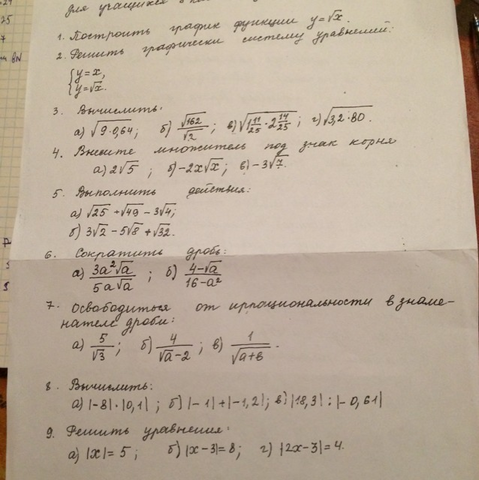 для учащихся
1. Построить график функции y=√x.
2. Решить графически систему уравнений:
{y=x,
{y=√x.
3. Вычислить:
а) √(9·0,64); б) √162/√2; в) √(1 11/25 · 2 14/25); г) √(3,2·80).
4. Внесите множитель под знак корня
а) 2√5; б) -2x√x; в) -3√7.
5. Выполнить действия:
а) √25 + √49 - 3√4;
б) 3√2 - 5√8 + √32.
6. Сократить дробь:
а) 3a²√a / 5a√a; б) 4-√a / 16-a²
7. Освободиться от иррациональности в знаме-
нателе дроби:
а) 5/√3; б) 4/(√a-2); в) 1/√(a+b).
8. Вычислить:
а) |-8|·|0,1|; б) |-1|+|-1,2|; в) |18,3|:|-0,61|
9. Решить уравнения:
а) |x|=5; б) |x-3|=8; г) |2x-3|=4.